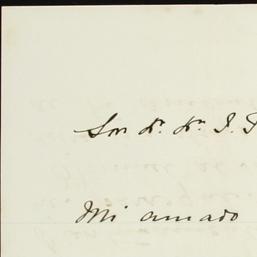 Sor Dr. Dn. I.
Mi amado